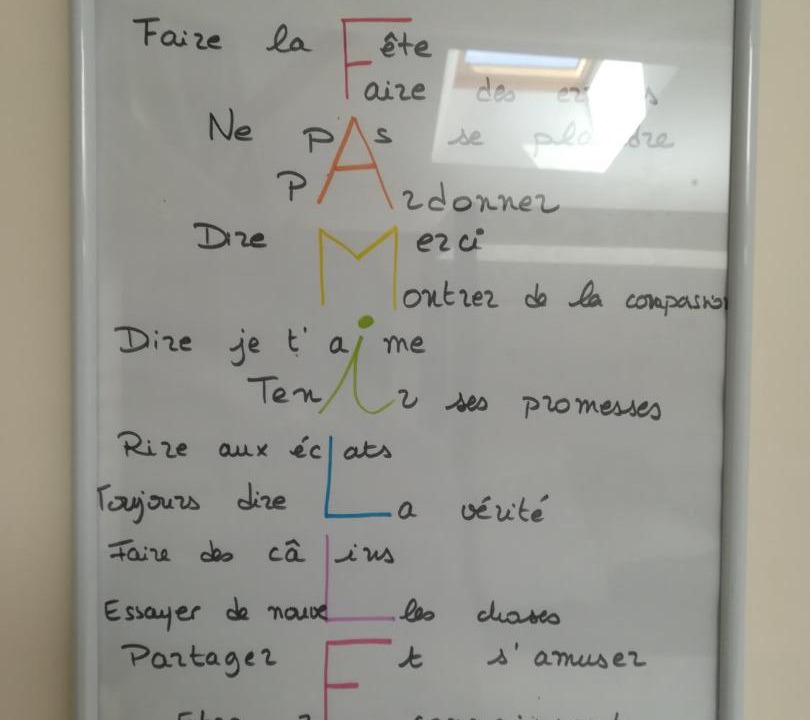 Faire la Fête
Faire des
Ne pAs se
PArdonner
Dire Merci
Montrer de la compassion
Dire je t'aime
Tenir ses promesses
Rire aux écLats
Toujours dire La vérité
Faire des câLins
Essayer de nouveLles choses
Partager Et s'amuser